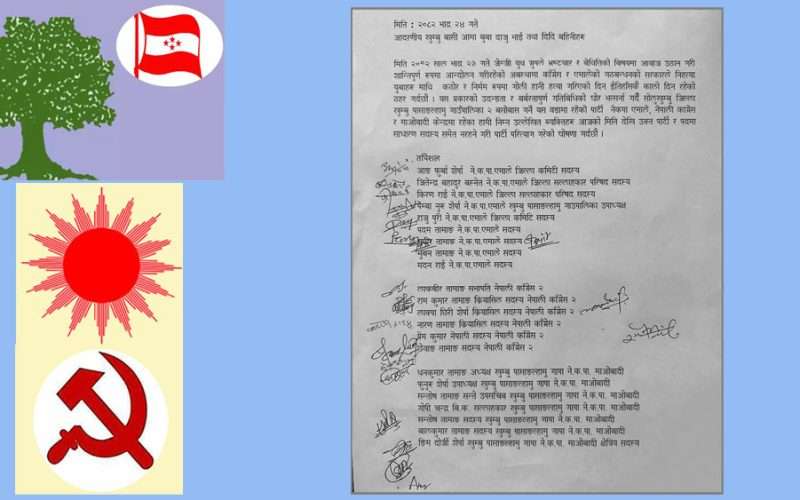 मिति : २०८२ भाद्र २४ गते
आदरणीय खुम्बु बासी आमा बुबा दाजु भाई तथा दिदि बहिनीहरू
मिति २०८२ साल भाद्र २३ गते जेन्जी युथ ग्रुपले भ्रष्टचार र बेथितिको बिषयमा आवाज उठान गरी
शान्तिपुर्ण रुपमा आन्दोलन गरीरहेको अबस्थामा कांग्रेस र एमालेको गठबन्धनको सरकारले निहत्था
युवाहरू माथि कठोर र निर्मम रुपमा गोली हानी हत्या गरिएको दिन ईतिहासिकै कालो दिन रहेको
ठहर गर्दछौं । यस प्रकारको उदन्डता र बर्बरतापुर्ण गतिबिधिको घोर भर्त्सना गर्दै सोलुखुम्बु जिल्ला
खुम्बु पासाङल्हामु गाउँपालिका २ बसोबास गर्ने यस वडामा रहेका पार्टी नेकपा एमाले, नेपाली कांग्रेस
र माओवादी केन्द्रमा रहेका हामी निम्न उल्लेखित ब्यक्तिहरू आजको मिति देखि उक्त पार्टी र पदमा
साधारण सदस्य समेत नरहने गरी पार्टी परित्याग गरेको घोषणा गर्दछौं ।
तर्पिशल
आङ फुर्बा शेर्पा ने.क.पा.एमाले जिल्ला कमिटी सदस्य
जितेन्द्र बहादुर बस्नेत ने.क.पा.एमाले जिल्ला सल्लाहकार परिषद सदस्य
किरण राई ने.क.पा.एमाले जिल्ला सल्लाहकार परिषद सदस्य
पेम्बा नुरु शेर्पा ने.क.पा.एमाले खुम्बु पासाङल्हामु गाउपालिका उपाध्यक्ष
राजु पुरी ने.क.पा.एमाले जिल्ला कमिटि सदस्य
पदम तामाङ ने.क.पा.एमाले सदस्य
तामाङ ने.क.पा.एमाले सदस्य
तामाङ ने.क.पा.एमाले सदस्य
मदन राई ने.क.पा.एमाले सदस्य
तामाङ सभापति नेपाली कांग्रेस २
राम कुमार तामाङ क्रियासिल सदस्य नेपाली कांग्रेस २
ल्हाक्पा घिरी शेर्पा क्रियासिल सदस्य नेपाली कांग्रेस २
नारण तामाङ क्रियासिल सदस्य नेपाली कांग्रेस २
प्रेम कुमार सदस्य नेपाली कांग्रेस २
तामाङ सदस्य नेपाली कांग्रेस २
धनकुमार तामाङ अध्यक्ष खुम्बु पासाङल्हामु गापा ने.क.पा. माओबादी
फुनुरु शेर्पा उपाध्यक्ष खुम्बु पासाङल्हामु गापा ने.क.पा. माओबादी
सन्तोष तामाङ सन्ते उपसचिब खुम्बु पासाङल्हामु गापा ने.क.पा. माओबादी
गोपी चन्द्र बि.क. सल्लाहकार खुम्बु पासाङल्हामु गापा ने.क.पा. माओबादी
सन्तोष तामाङ सदस्य खुम्बु पासाङल्हामु गापा ने.क.पा. माओबादी
बालकुमार तामाङ सदस्य खुम्बु पासाङल्हामु गापा ने.क.पा. माओबादी
ङिम दोर्जी शेर्पा खुम्बु पासाङल्हामु गापा ने.क.पा. माओबादी क्षेत्रिय सदस्य